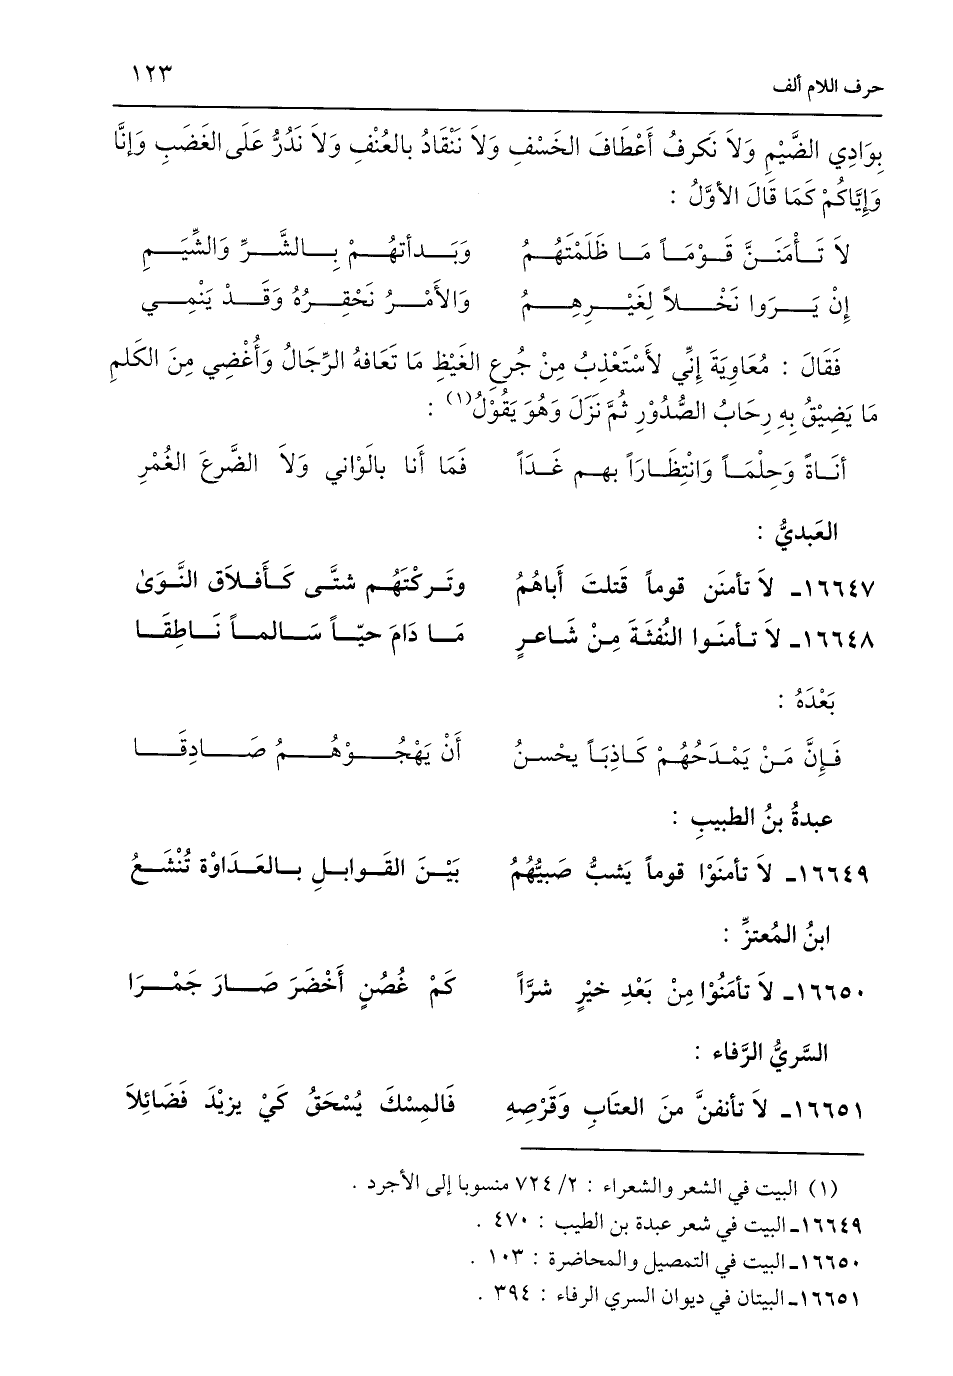 حرف اللام ألف ١٢٣
بِوَادِي الضَّيْمِ وَلاَ نَكرفُ أَعْطَافَ الخَسْفِ وَلاَ نَنْقَادُ بالعُنْفِ وَلاَ نَدُرُّ عَلَى الغَضَبِ وَإِنَّا
وَإِيَّاكُمْ كَمَا قَالَ الأوَّلُ :
لاَ تَأْمَنَنَّ قَوْمَاً مَا ظَلَمْتَهُمُ وَبَدأتهُمْ بِالشَّرِّ وَالشِّيَمِ
إِنْ يَرَوا نَخْلاً لِغَيْرِهِمُ وَالأَمْرُ نَحْقِرُهُ وَقَدْ يَنْمِي
فَقَالَ : مُعَاوِيَةَ إِنِّي لأَسْتَعْذِبُ مِنْ جُرعِ الغَيْظِ مَا تَعَافهُ الرِّجَالُ وَأُغْضِي مِنَ الكَلمِ
مَا يَضِيْقُ بِهِ رِحَابُ الصُّدُوْرِ ثُمَّ نَزَلَ وَهُوَ يَقُوْلُ(١) :
أنَاةً وَحِلْمَاً وَانْتِظَارَاً بهم غَدَاً فَمَا أَنا بالَوْاني وَلاَ الضَّرعَ الغُمْرِ
العَبديُّ :
١٦٦٤٧ـ لاَ تأمنَن قوماً قَتلتَ أَباهُمُ وتَركْتَهُم شتَّى كَأَفلاَق النَّوَىٰ
١٦٦٤٨ـ لاَ تأمنَوا النُفثَةَ مِنْ شَاعرٍ مَا دَامَ حيَّاً سَالماً نَاطِقَا
بَعْدَهُ :
فَإِنَّ مَنْ يَمْدَحُهُمْ كَاذِبَاً يحْسنُ أَنْ يَهْجُوْهُمُ صَادِقَا
عبدةُ بنُ الطبيبِ :
١٦٦٤٩ـ لاَ تأمنَوْا قوماً يَشبُّ صَبيُّهُمُ بَيْنَ القَوابلِ بالعَدَاوْة تُنْشَعُ
ابنُ المُعتزِّ :
١٦٦٥٠ـ لاَ تأمَنُوْا مِنْ بَعْدِ خيْرٍ شرَّاً كَمْ غُصُنٍ أَخْضَرَ صَارَ جَمْرَا
السَّريُّ الرَّفاء :
١٦٦٥١ـ لاَ تأنفنَّ منَ العتَابِ وَقَرْصِهِ فَالمِسْكَ يُسْحَقُ كَيْ يزيْدَ فَضَائلاَ
(١) البيت في الشعر والشعراء : ٢/ ٧٢٤ منسوبا إلى الأجرد .
١٦٦٤٩ـ البيت في شعر عبدة بن الطيب : ٤٧٠ .
١٦٦٥٠ـ البيت في التمصيل والمحاضرة : ١٠٣ .
١٦٦٥١ـ البيتان في ديوان السري الرفاء : ٣٩٤ .